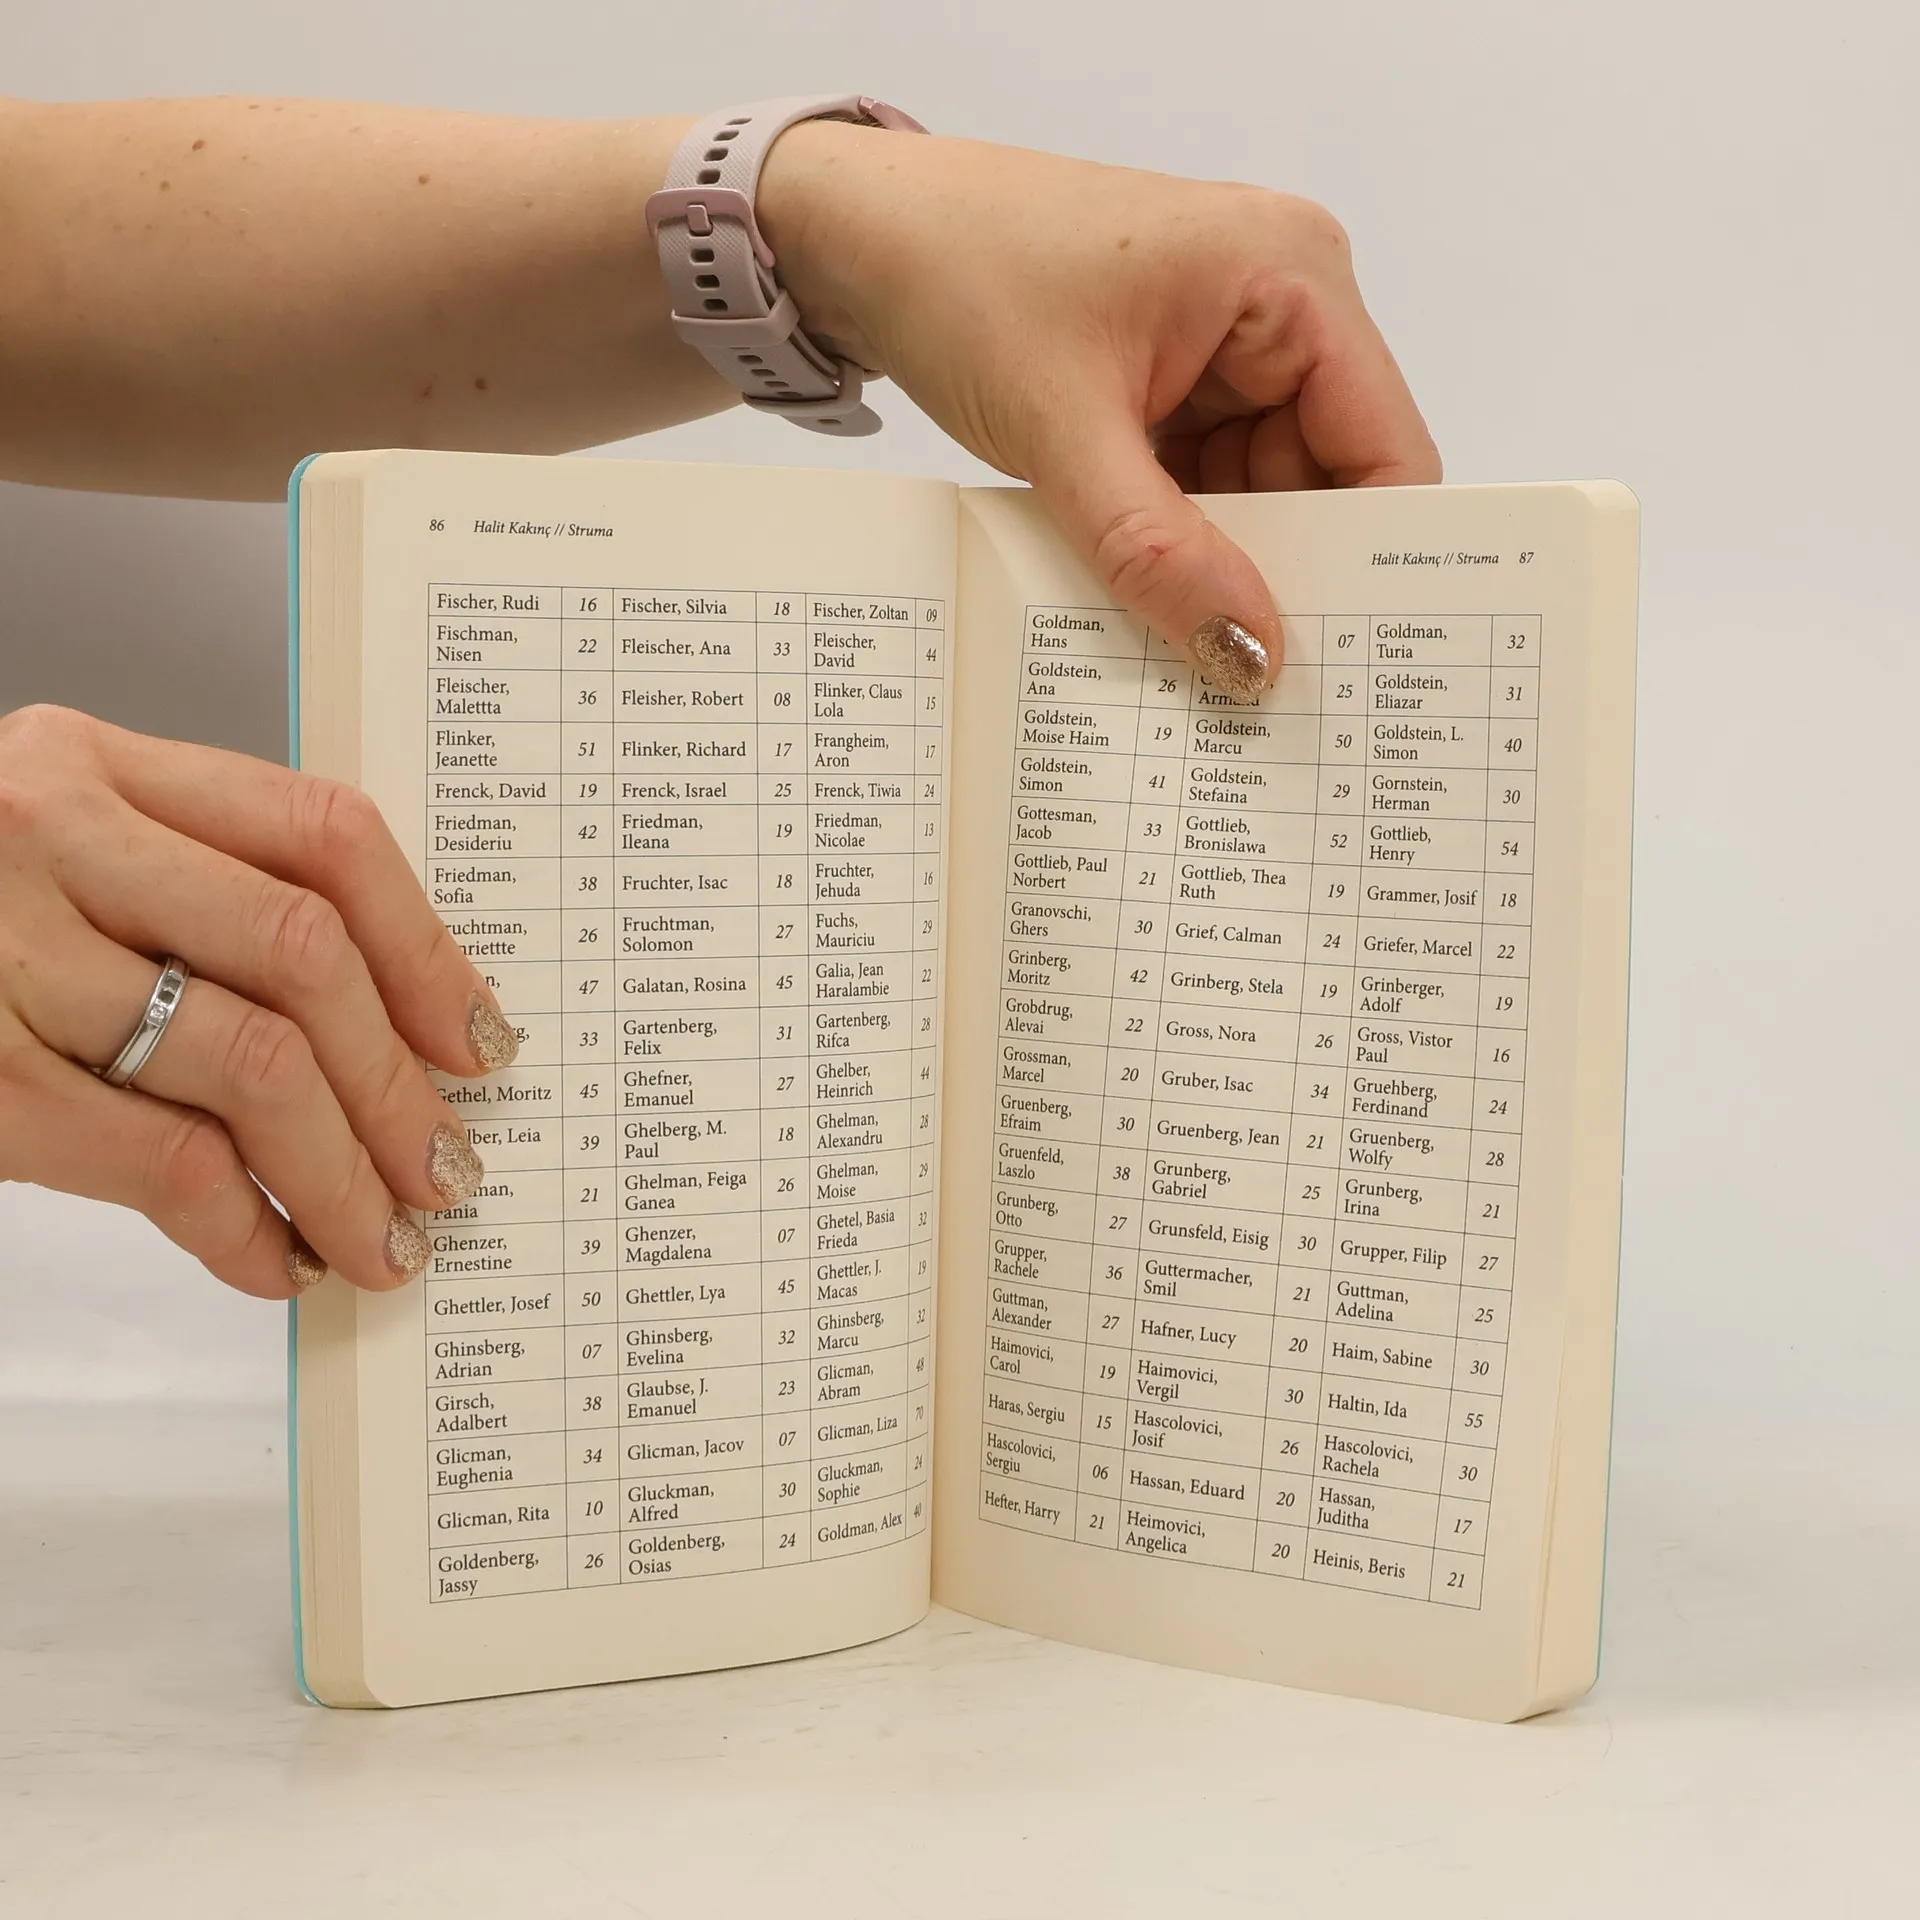 86 Halit Kakınç // Struma
Fischer, Rudi 16 Fischer, Silvia 18 Fischer, Zoltan 09
Fischman, Nisen 22 Fleischer, Ana 33 Fleischer, David 44
Fleischer, Malettta 36 Fleisher, Robert 08 Flinker, Claus Lola 15
Flinker, Jeanette 51 Flinker, Richard 17 Frangheim, Aron 17
Frenck, David 19 Frenck, Israel 25 Frenck, Tiwia 24
Friedman, Desideriu 42 Friedman, Ileana 19 Friedman, Nicolae 13
Friedman, Sofia 38 Fruchter, Isac 18 Fruchter, Jehuda 16
26 Fruchtman, Solomon 27 Fuchs, Mauriciu 29
47 Galatan, Rosina 45 Galia, Jean Haralambie 22
33 Gartenberg, Felix 31 Gartenberg, Rifca 28
Gethel, Moritz 45 Ghefner, Emanuel 27 Ghelber, Heinrich 44
Leia 39 Ghelberg, M. Paul 18 Ghelman, Alexandru 28
Fania 21 Ghelman, Feiga Ganea 26 Ghelman, Moise 29
Ghenzer, Ernestine 39 Ghenzer, Magdalena 07 Ghetel, Basia Frieda 32
Ghettler, Josef 50 Ghettler, Lya 45 Ghettler, J. Macas 19
Ghinsberg, Adrian 07 Ghinsberg, Evelina 32 Ghinsberg, Marcu 32
Girsch, Adalbert 38 Glaubse, J. Emanuel 23 Glicman, Abram 48
Glicman, Eughenia 34 Glicman, Jacov 07 Glicman, Liza 70
Glicman, Rita 10 Gluckman, Alfred 30 Gluckman, Sophie 24
Goldenberg, Jassy 26 Goldenberg, Osias 24 Goldman, Alex 40
Halit Kakınç // Struma 87
Goldman, Hans 07 Goldman, Turia 32
Goldstein, Ana 26 Armand 25 Goldstein, Eliazar 31
Goldstein, Moise Haim 19 Goldstein, Marcu 50 Goldstein, L. Simon 40
Goldstein, Simon 41 Goldstein, Stefaina 29 Gornstein, Herman 30
Gottesman, Jacob 33 Gottlieb, Bronislawa 52 Gottlieb, Henry 54
Gottlieb, Paul Norbert 21 Gottlieb, Thea Ruth 19 Grammer, Josif 18
Granovschi, Ghers 30 Grief, Calman 24 Griefer, Marcel 22
Grinberg, Moritz 42 Grinberg, Stela 19 Grinberger, Adolf 19
Grobdrug, Alevai 22 Gross, Nora 26 Gross, Vistor Paul 16
Grossman, Marcel 20 Gruber, Isac 34 Gruehberg, Ferdinand 24
Gruenberg, Efraim 30 Gruenberg, Jean 21 Gruenberg, Wolfy 28
Gruenfeld, Laszlo 38 Grunberg, Gabriel 25 Grunberg, Irina 21
Grunberg, Otto 27 Grunsfeld, Eisig 30 Grupper, Filip 27
Grupper, Rachele 36 Guttermacher, Smil 21 Guttman, Adelina 25
Guttman, Alexander 27 Hafner, Lucy 20 Haim, Sabine 30
Haimovici, Carol 19 Haimovici, Vergil 30 Haltin, Ida 55
Haras, Sergiu 15 Hascolovici, Josif 26 Hascolovici, Rachela 30
Hascolovici, Sergiu 06 Hassan, Eduard 20 Hassan, Juditha 17
Hefter, Harry 21 Heimovici, Angelica 20 Heinis, Beris 21